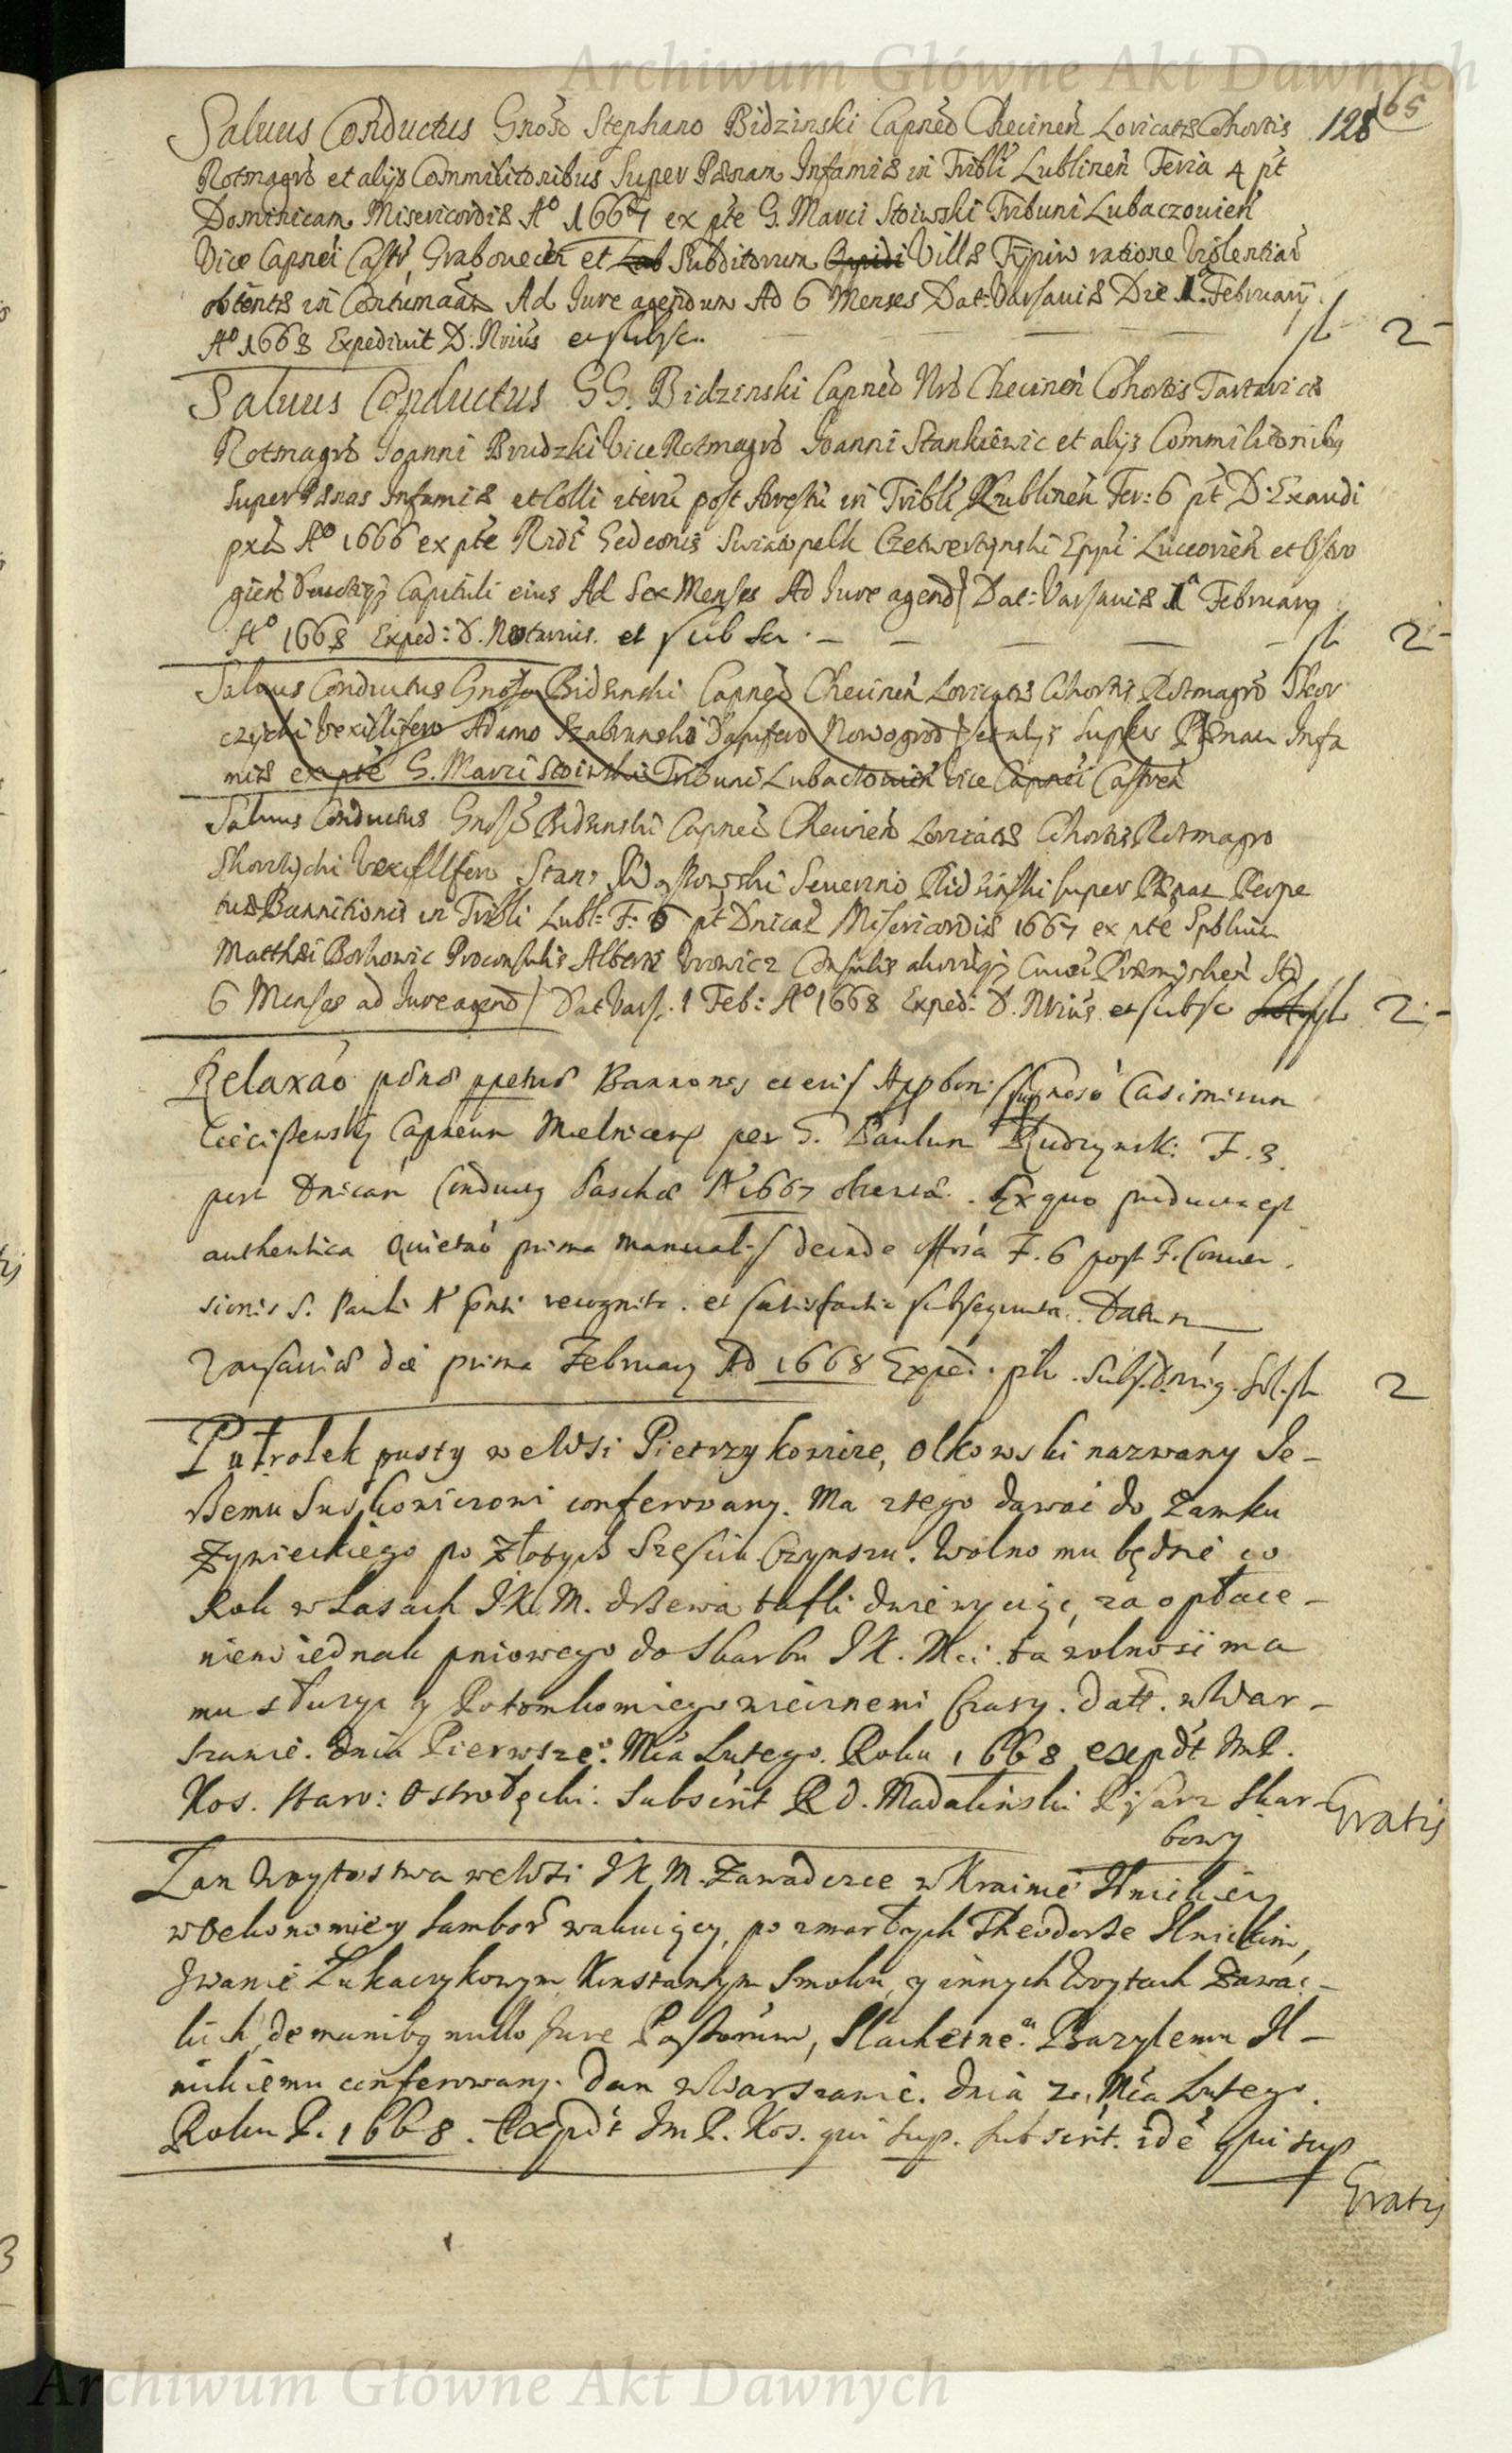 Archiwum Główne Akt Dawnych
165
Saluus Conductus Gnoso Stephano Bidzinski Capneo Checinen Loricatæ Cohortis 128
Rotmagro et alijs Commilitonibus Super Pænam Infamiæ in Tribli Lublinen Feria 4 pt
Dominicam Misericordiæ Aº 1667 ex pte G. Marci Stoiwski Tribuni Lubaczouien
Vice Capnei Castr Grabouecen et Subditorum Villæ Typin ratione Violentiar
obtentæ in Contumaam Ad Iure agendum Ad 6 Menses Dat: Varsauiæ Die 1ª February
Aº 1668 Expediuit D. Nrius et subsc. fl 2-
Saluus Conductus GG. Bidzinski Capneo Nro Checinen Cohortis Tartaricæ
Rotmagro Joanni Brudzki Vice Rotmagro Joanni Stankiewic et alijs Commilitonibq
Super Pænas Infamiæ et Colli iteru post Arestu in Tribli Lublinen Fer: 6 pt D: Exaudi
pxæ Aº 1666 ex pte Rndi Gedeonis Swiatopelk Czetwertynski Eppi Luceorien et Ostro
gien Capituli eius Ad Sex Menses Ad Iure agend Dat: Varsauiæ 1ª February
Aº 1668 Exped: D. Notarius. et subsc. fl 2-
Saluus Conductus Gnoso Bidzinski Capneo Checinen Loricatæ Cohortis Rotmagro Skor
czycki Vexillifero Adamo Dapifero Nowogrod et alijs Super Pænam Infa
miæ ex pte G. Marci Stoiwski Tribuni Lubaczouien Vice Capnei Castren
Saluus Conductus Gnoso Bidzinski Capneo Checinen Loricatæ Cohortis Rotmagro
Skorczycki Vexillifero Stan: Seuerino Bidzinski super Pænas Perpe
tuæ Bannitionis in Tribli Lubl: F: 6 pt Dnicam Misericordiæ 1667 ex pte Spblium
Matthæi Borkowic Proconsulis Alberti Consulis aliorqz Ciuiu Præmyslien Ad
6 Menses ad Iure agend Dat Vars. 1 Feb: Aº 1668 Exped: D. Nrius et subsc fl 2-
Relaxao pænæ ppetuæ Bannonis et eius Appbonis Casimirum
Cieciszewsky Capneum Mielnicens per G. Paulum Rudzynski F. 3.
post Dnicam Conductus Paschæ Aº 1667 obtentæ. Ex quo producta est
authentica Quietao prima manualis deinde offosa F. 6 post F. Conuer.
sionis S. Pauli Aº psnti recognita. et satisfactio subsequuta. Datum
Varsauiæ die prima February Ad 1668 Exped. fl 2
Pułrolek pusty we Wsi Pietrzykowice, Olkowski nazwany Je-
rzemu Suskowiczowi conferowany. Ma z tego dawać do Zamku
Zywieckiego po Złotych Sześciu Czynszu. Wolno mu będzie co
Rok w Lasach JK. M. drzewa tafli dwie wyciąć, za opłace-
niem iednak pniowego do Skarbu JK. Mci. ta wolność ma
mu służyc y Potomkom iego wiecznemi Czasy. Datt. w War-
szawie. Dnia Pierwsze. Mca Lutego. Roku 1668 expdt JmP.
Kos. Staro: Ostrołęcki. Subscrit P. d. Madalinski Pisarz Skar- Gratis
bowy
Łan Woytostwa we Wsi JK M. Zawadzce w Krainie Ilnickiey
w Oekonomiey Sambor wakuiący, po zmarłych Theodorze Ilnickim,
Iwanie Łukaczykowym, Konstantym Smolku, y innych Woytach Zawac-
kich, de manibq nullo Iure Possorum, Slachetne Bazylemu Il-
nickiemu conferowany. Dan w Warszawie. Dnia 2. Mca Lutego.
Roku P. 1668. Expdt JmP. Kos. qui sup. Subscrit. ide qui sup
Gratis
Archiwum Główne Akt Dawnych